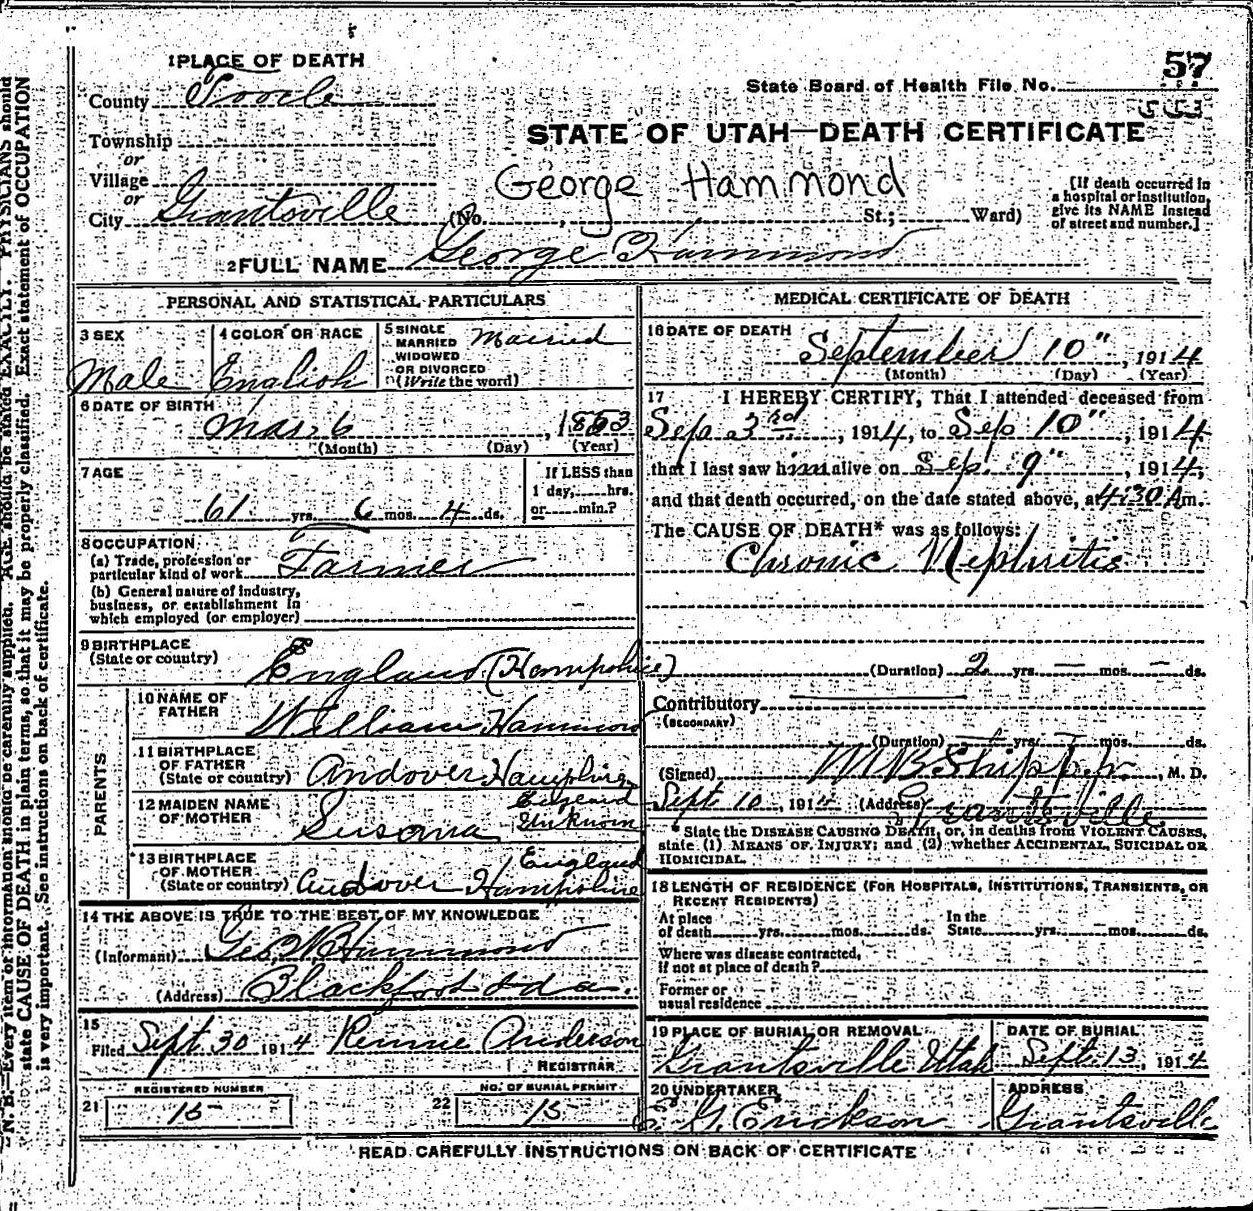 57
State Board of Health File No.
553
1 PLACE OF DEATH
County Tooele
Township
or
Village
or
City Grantsville (No. , St.; Ward)
STATE OF UTAH—DEATH CERTIFICATE
George Hammond
[If death occurred in
a hospital or institution,
give its NAME instead
of street and number.]
2 FULL NAME George Hammond
PERSONAL AND STATISTICAL PARTICULARS
3 SEX
Male
4 COLOR OR RACE
English
5 SINGLE
MARRIED
WIDOWED
OR DIVORCED
(Write the word)
Married
6 DATE OF BIRTH
Mar. 6, 1853
(Month) (Day) (Year)
7 AGE
61 yrs. 6 mos. 4 ds.
If LESS than
1 day, hrs.
or min.?
8 OCCUPATION
(a) Trade, profession or
particular kind of work Farmer
(b) General nature of industry,
business, or establishment in
which employed (or employer)
9 BIRTHPLACE
(State or country) England (Hampshire)
PARENTS
10 NAME OF
FATHER
William Hammond
11 BIRTHPLACE
OF FATHER
(State or country) Andover Hampshire
England
12 MAIDEN NAME
OF MOTHER
Susana Unknown
13 BIRTHPLACE
OF MOTHER
(State or country) Andover Hampshire
England
14 THE ABOVE IS TRUE TO THE BEST OF MY KNOWLEDGE
(Informant) Geo. W. Hammond
(Address) Blackfoot Ida.
15
Filed Sept 30 1914 Rennie Anderson
REGISTRAR
REGISTERED NUMBER
21 15
NO. OF BURIAL PERMIT
22 15
MEDICAL CERTIFICATE OF DEATH
16 DATE OF DEATH
September 10", 1914
(Month) (Day) (Year)
17 I HEREBY CERTIFY, That I attended deceased from
Sep 3rd, 1914, to Sep 10", 1914
that I last saw him alive on Sep. 9", 1914,
and that death occurred, on the date stated above, at 4:30 A m.
The CAUSE OF DEATH* was as follows:
Chronic Nephritis
(Duration) 2 yrs. — mos. — ds.
Contributory
(SECONDARY)
(Duration) yrs. mos. ds.
(Signed) , M. D.
Sept 10, 1914 (Address) Grantsville
* State the DISEASE CAUSING DEATH, or, in deaths from VIOLENT CAUSES,
state (1) MEANS OF INJURY; and (2) whether ACCIDENTAL, SUICIDAL OR
HOMICIDAL.
18 LENGTH OF RESIDENCE (FOR HOSPITALS, INSTITUTIONS, TRANSIENTS, OR
RECENT RESIDENTS)
At place
of death yrs. mos. ds.
In the
State yrs. mos. ds.
Where was disease contracted,
if not at place of death?
Former or
usual residence
19 PLACE OF BURIAL OR REMOVAL
Grantsville Utah
DATE OF BURIAL
Sept. 13, 1914
20 UNDERTAKER
E. G. Erickson
ADDRESS
Grantsville
READ CAREFULLY INSTRUCTIONS ON BACK OF CERTIFICATE
N. B.—Every item of information should be carefully supplied. AGE should be stated EXACTLY. PHYSICIANS should
state CAUSE OF DEATH in plain terms, so that it may be properly classified. Exact statement of OCCUPATION
is very important. See instructions on back of certificate.